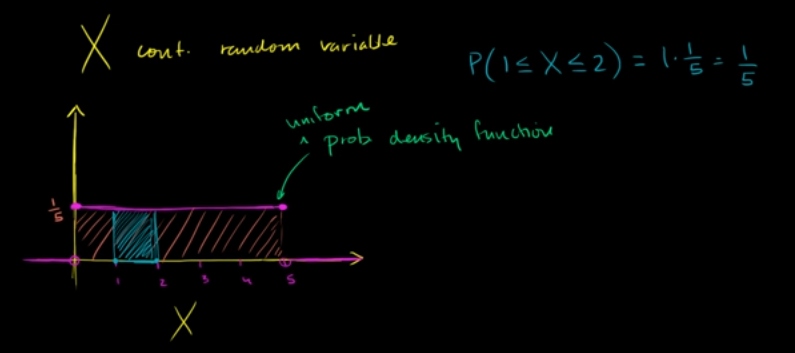 X cont. random variable
P(1 ≤ X ≤ 2) = 1 · 1/5 = 1/5
uniform
^ prob density function
1/5
1 2 3 4 5
X